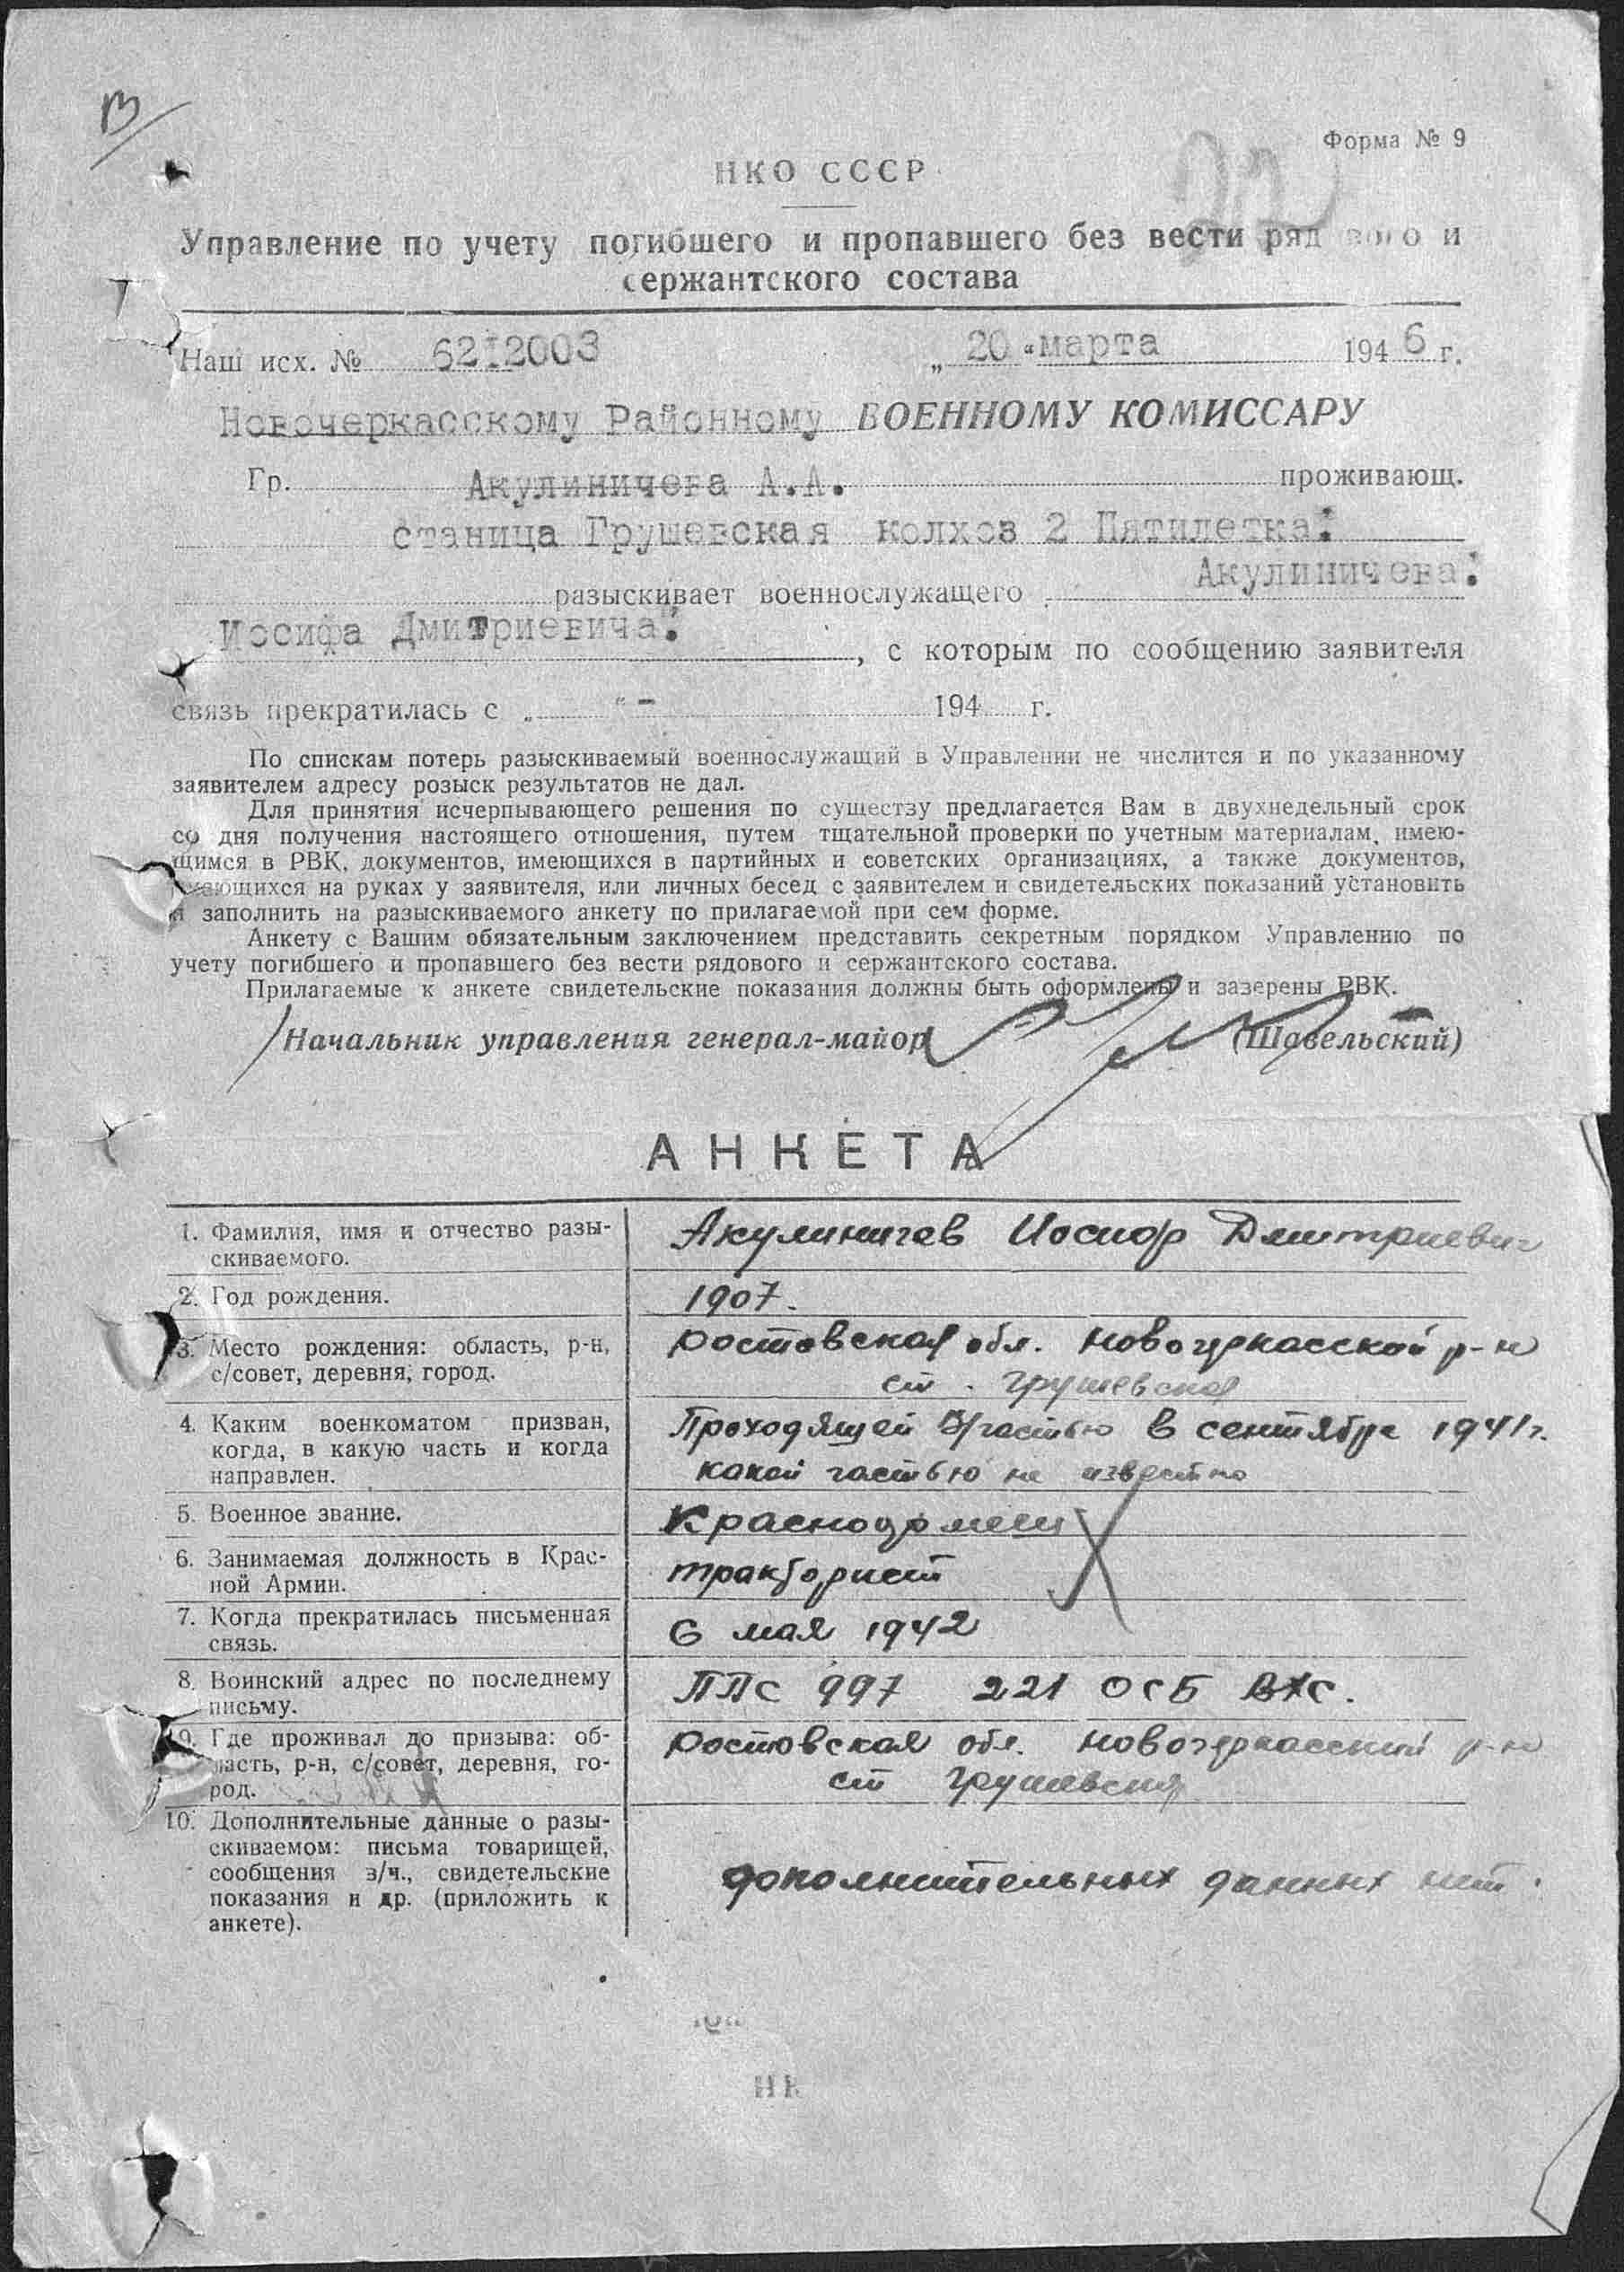 Форма № 9
НКО СССР
Управление по учету погибшего и пропавшего без вести ряд вого и
сержантского состава
Наш исх. № 62I2003 „ 20 “ марта 194 6 г.
Новочеркасскому Районному ВОЕННОМУ КОМИССАРУ
Гр. Акулиничева А.А. проживающ.
станица Грушевская колхоз 2 Пятилетка:
Акулиничева:
разыскивает военнослужащего
Иосифа Дмитриевича:
, с которым по сообщению заявителя
связь прекратилась с „ “ - 194 г.
По спискам потерь разыскиваемый военнослужащий в Управлении не числится и по указанному
заявителем адресу розыск результатов не дал.
Для принятия исчерпывающего решения по существу предлагается Вам в двухнедельный срок
со дня получения настоящего отношения, путем тщательной проверки по учетным материалам, имею-
щимся в РВК, документов, имеющихся в партийных и советских организациях, а также документов,
имеющихся на руках у заявителя, или личных бесед с заявителем и свидетельских показаний установить
и заполнить на разыскиваемого анкету по прилагаемой при сем форме.
Анкету с Вашим обязательным заключением представить секретным порядком Управлению по
учету погибшего и пропавшего без вести рядового и сержантского состава.
Прилагаемые к анкете свидетельские показания должны быть оформлены и заверены РВК.
Начальник управления генерал-майор (Шавельский)
АНКЕТА
1. Фамилия, имя и отчество разы-
скиваемого.
Акулиничев Иосиф Дмитриевич
2. Год рождения.
1907.
3. Место рождения: область, р-н,
с/совет, деревня, город.
Ростовская обл. Новочеркасской р-н
ст. Грушевская
4. Каким военкоматом призван,
когда, в какую часть и когда
направлен.
Проходящей В/частью в сентябре 1941г.
какой частью не известно
5. Военное звание.
Красноармеец
6. Занимаемая должность в Крас-
ной Армии.
тракторист
7. Когда прекратилась письменная
связь.
6 мая 1942
8. Воинский адрес по последнему
письму.
ППС 997 221 ОСБ
9. Где проживал до призыва: об-
ласть, р-н, с/совет, деревня, го-
род.
Ростовская обл. Новочеркасский р-н
ст Грушевская
10. Дополнительные данные о разы-
скиваемом: письма товарищей,
сообщения в/ч., свидетельские
показания и др. (приложить к
анкете).
дополнительных данных нет.